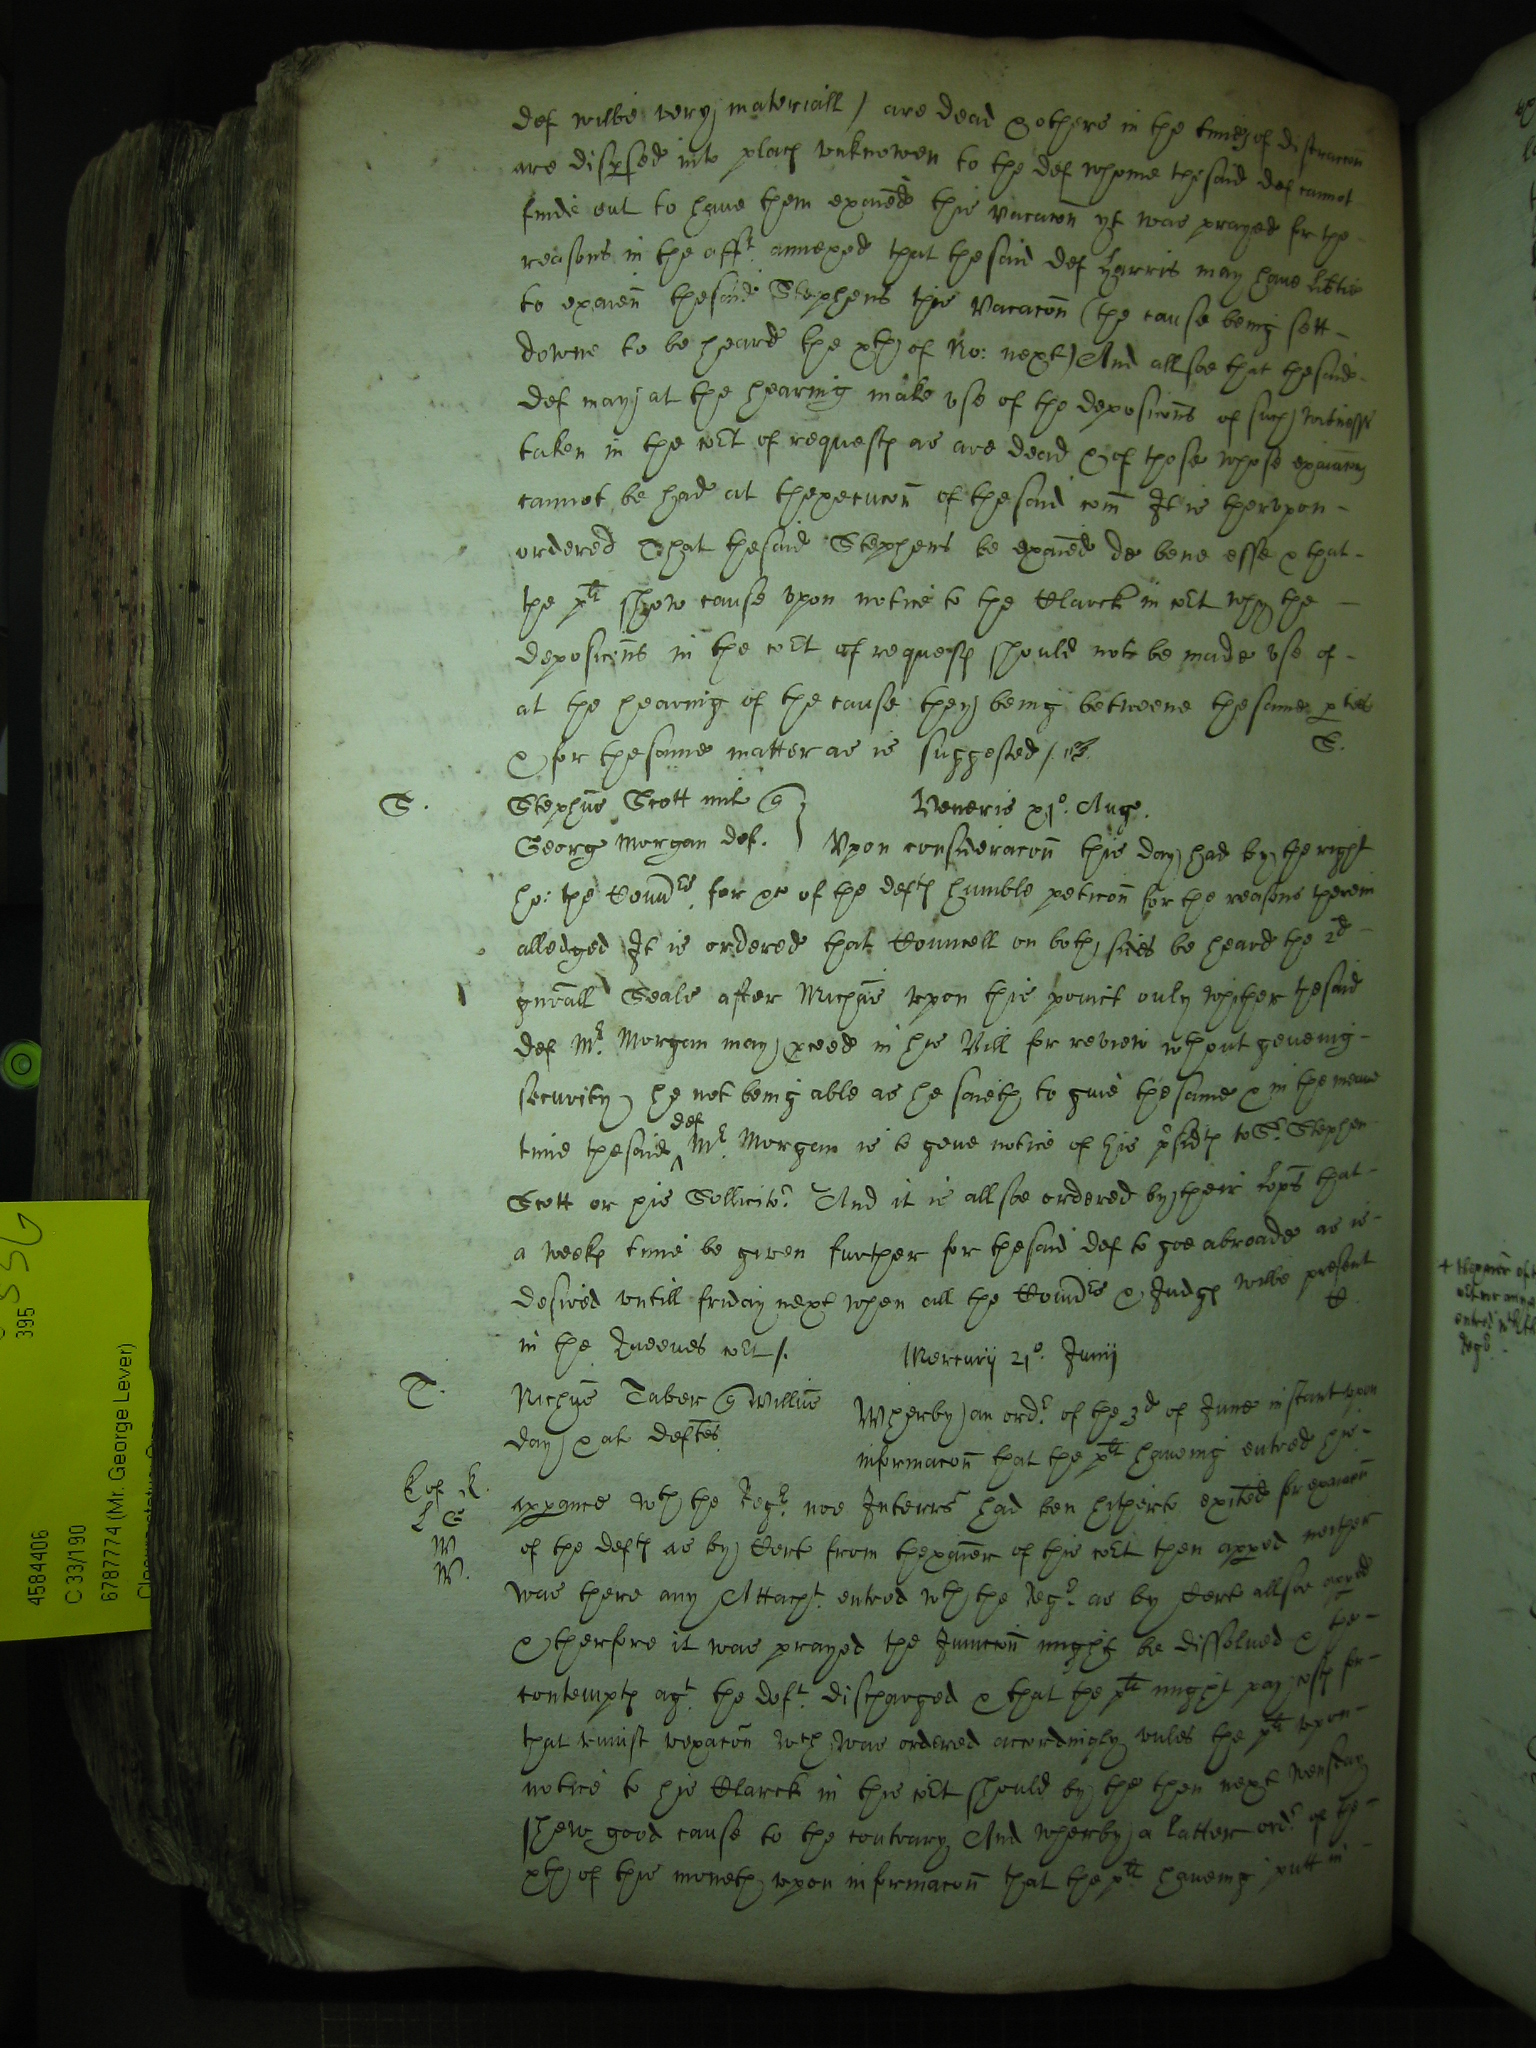 def wilbe very materiall / are dead & others in the times of distraccon
are dispersed into places unknowen to the def whome the said def cannot
finde out to have them exaied this vacacon yt was prayed for the
reasons in the afft annexed that the said def Harris may have libtie
to exaien the saide Stephens this vacacon (the cause being sett
downe to be heard the xth of No: next) And allsoe that the saide
def may at the hearing make use of the deposicons of such witnesses
taken in the cort of requests as are dead & of those whose exaiacon
cannot be had at thexecucon of the said com It is therupon
ordered That the said Stephens be exaied de bene esse & that
the plt shew cause upon notice to the Clarck in cort why the
deposicons in the cort of requests should not be made use of
at the hearing of the cause they being betweene the same pties
& for the same matter as is suggested /.
S.
S. Stephus Scott mil q
Veneris xj° Aug.
George Morgan def. } Upon consideracon this day had by the right
ho: the Comrs for &c of the defts humble peticon for the reasons therein
alledged It is ordered that Councell on both sides be heard the 2d
gnrall Seale after Michus upon this point only whither the said
def Mr Morgan may pceed in his Bill for review wthout geveing
security he not being able as he saieth to give the same & in the meane
time the saide def Mr Morgan is to geve notice of his psidts to Sr Stephen
Scott or his Sollicitor And it is allsoe ordered by their Lopps that
a weeks time be given further for the said def to goe abroade as is
desired untill friday next when all the Comrs & Judges wilbe present
in the Queenes cort /.
C.
Mercurij 21° Junij
T. Nichus Taber q Willus
day & al deftes
Wherby an ordr of the 3d of June instant upon
informacon that the plt haveing entred his
K of R.
L C
W
W.
appance wth the Regr noe Interrs had ben hitherto exited for exaiacon
of the defts as by Cert from thexaier of this cort then apped neither
was there any Attacht entred wth the Regr as by Cert allsoe apped
& therfore it was prayed the Junccon might be dissolved & the
contempts agt the deft discharged & that the plt might pay costs for
that uniust vexacon wch was ordered accordingly unles the plt upon
notice to his Clarck in this cort should by the then next wensday
shew good cause to the contrary And wherby a latter ordr of the
xth of this moneth upon informacon that the plt haveing putt in
395
4584406
C 33/190
6787774 (Mr. George Lever)